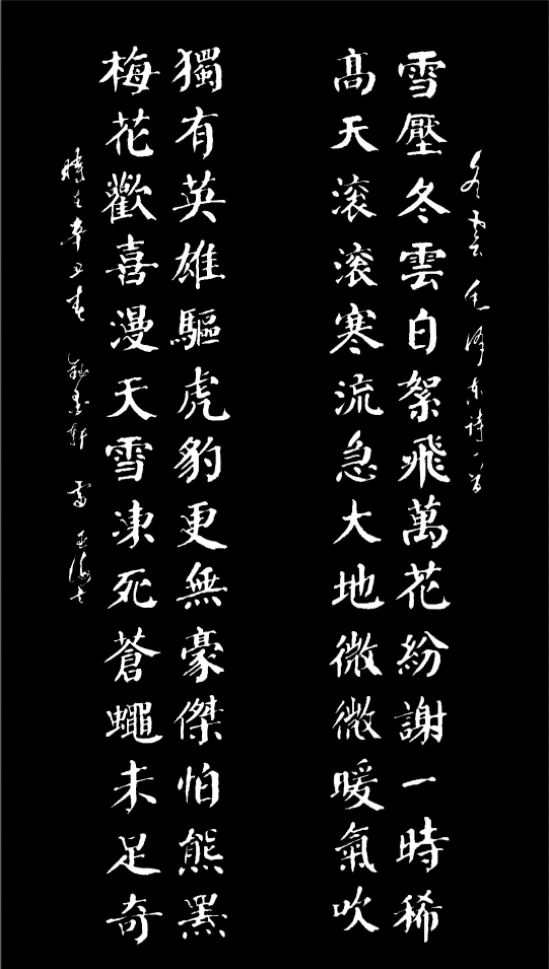 冬雲 毛泽东诗一首
雪壓冬雲白絮飛萬花紛謝一時稀
髙天滚滚寒流急大地微微暖氣吹
獨有英雄驅虎豹更無豪傑怕熊羆
梅花歡喜漫天雪凍死蒼蠅未足奇
時在辛丑春 墨軒